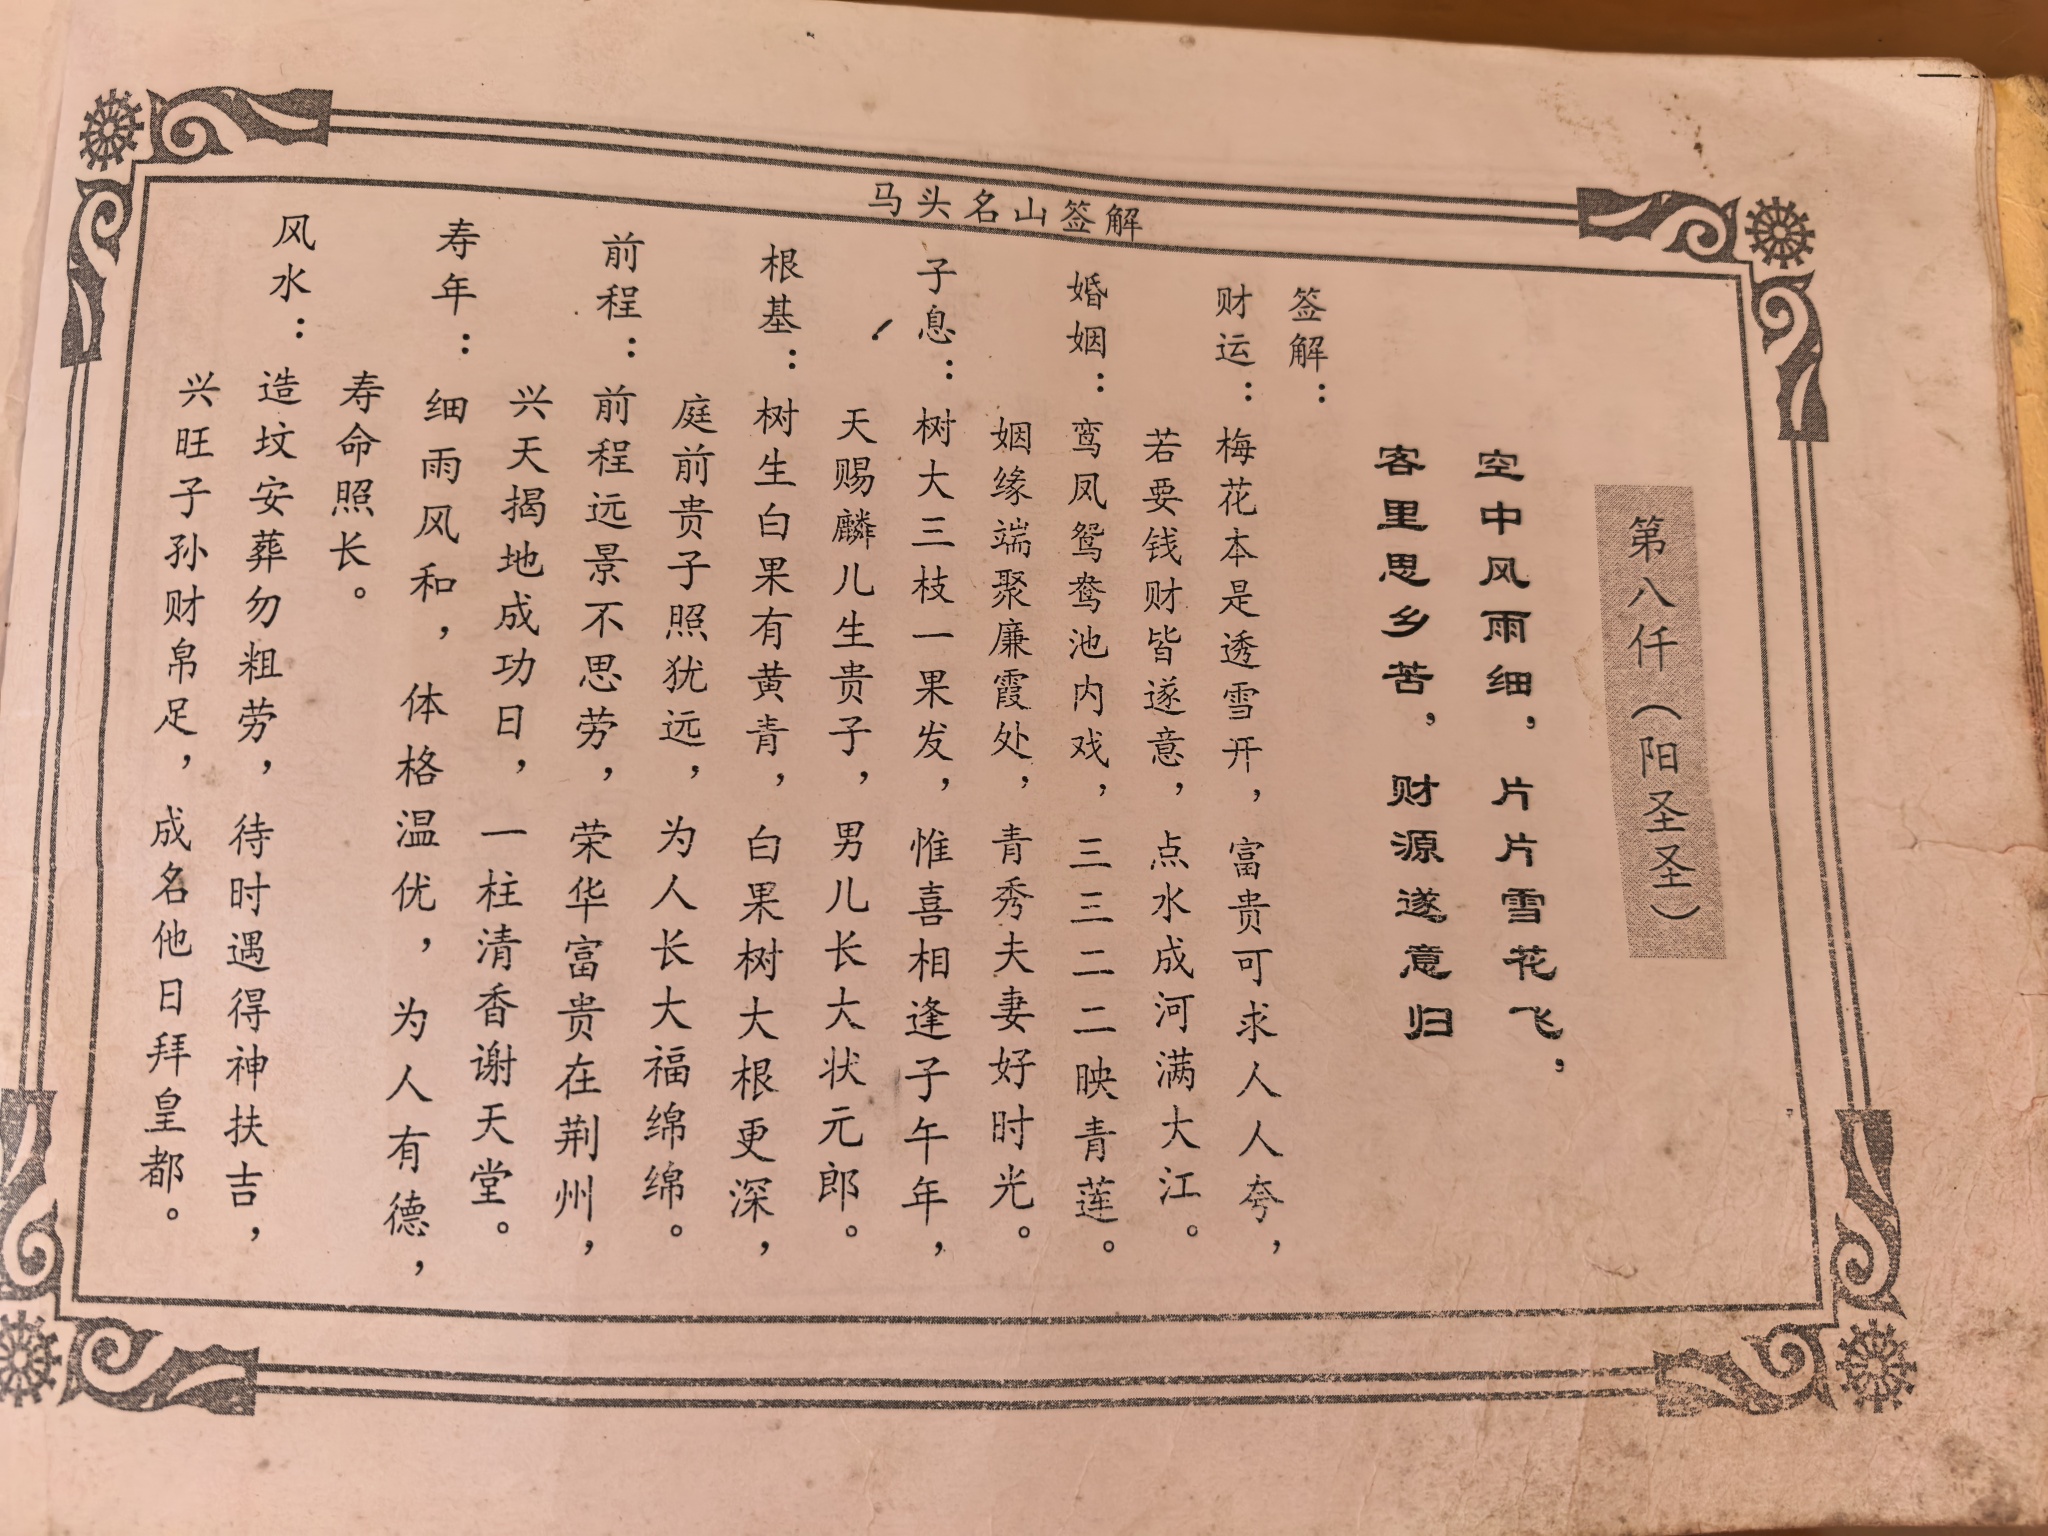 马头名山签解
第八仟（阳圣圣）
空中风雨细，片片雪花飞，
客里思乡苦，财源遂意归
签解：
财运：梅花本是透雪开，富贵可求人人夸，
若要钱财皆遂意，点水成河满大江。
婚姻：鸾凤鸳鸯池内戏，三三二二映青莲。
姻缘端聚廉霞处，青秀夫妻好时光。
子息：树大三枝一果发，惟喜相逢子午年，
天赐麟儿生贵子，男儿长大状元郎。
根基：树生白果有黄青，白果树大根更深，
庭前贵子照犹远，为人长大福绵绵。
前程：前程远景不思劳，荣华富贵在荆州，
兴天揭地成功日，一柱清香谢天堂。
寿年：细雨风和，体格温优，为人有德，
寿命照长。
风水：造坟安葬勿粗劳，待时遇得神扶吉，
兴旺子孙财帛足，成名他日拜皇都。